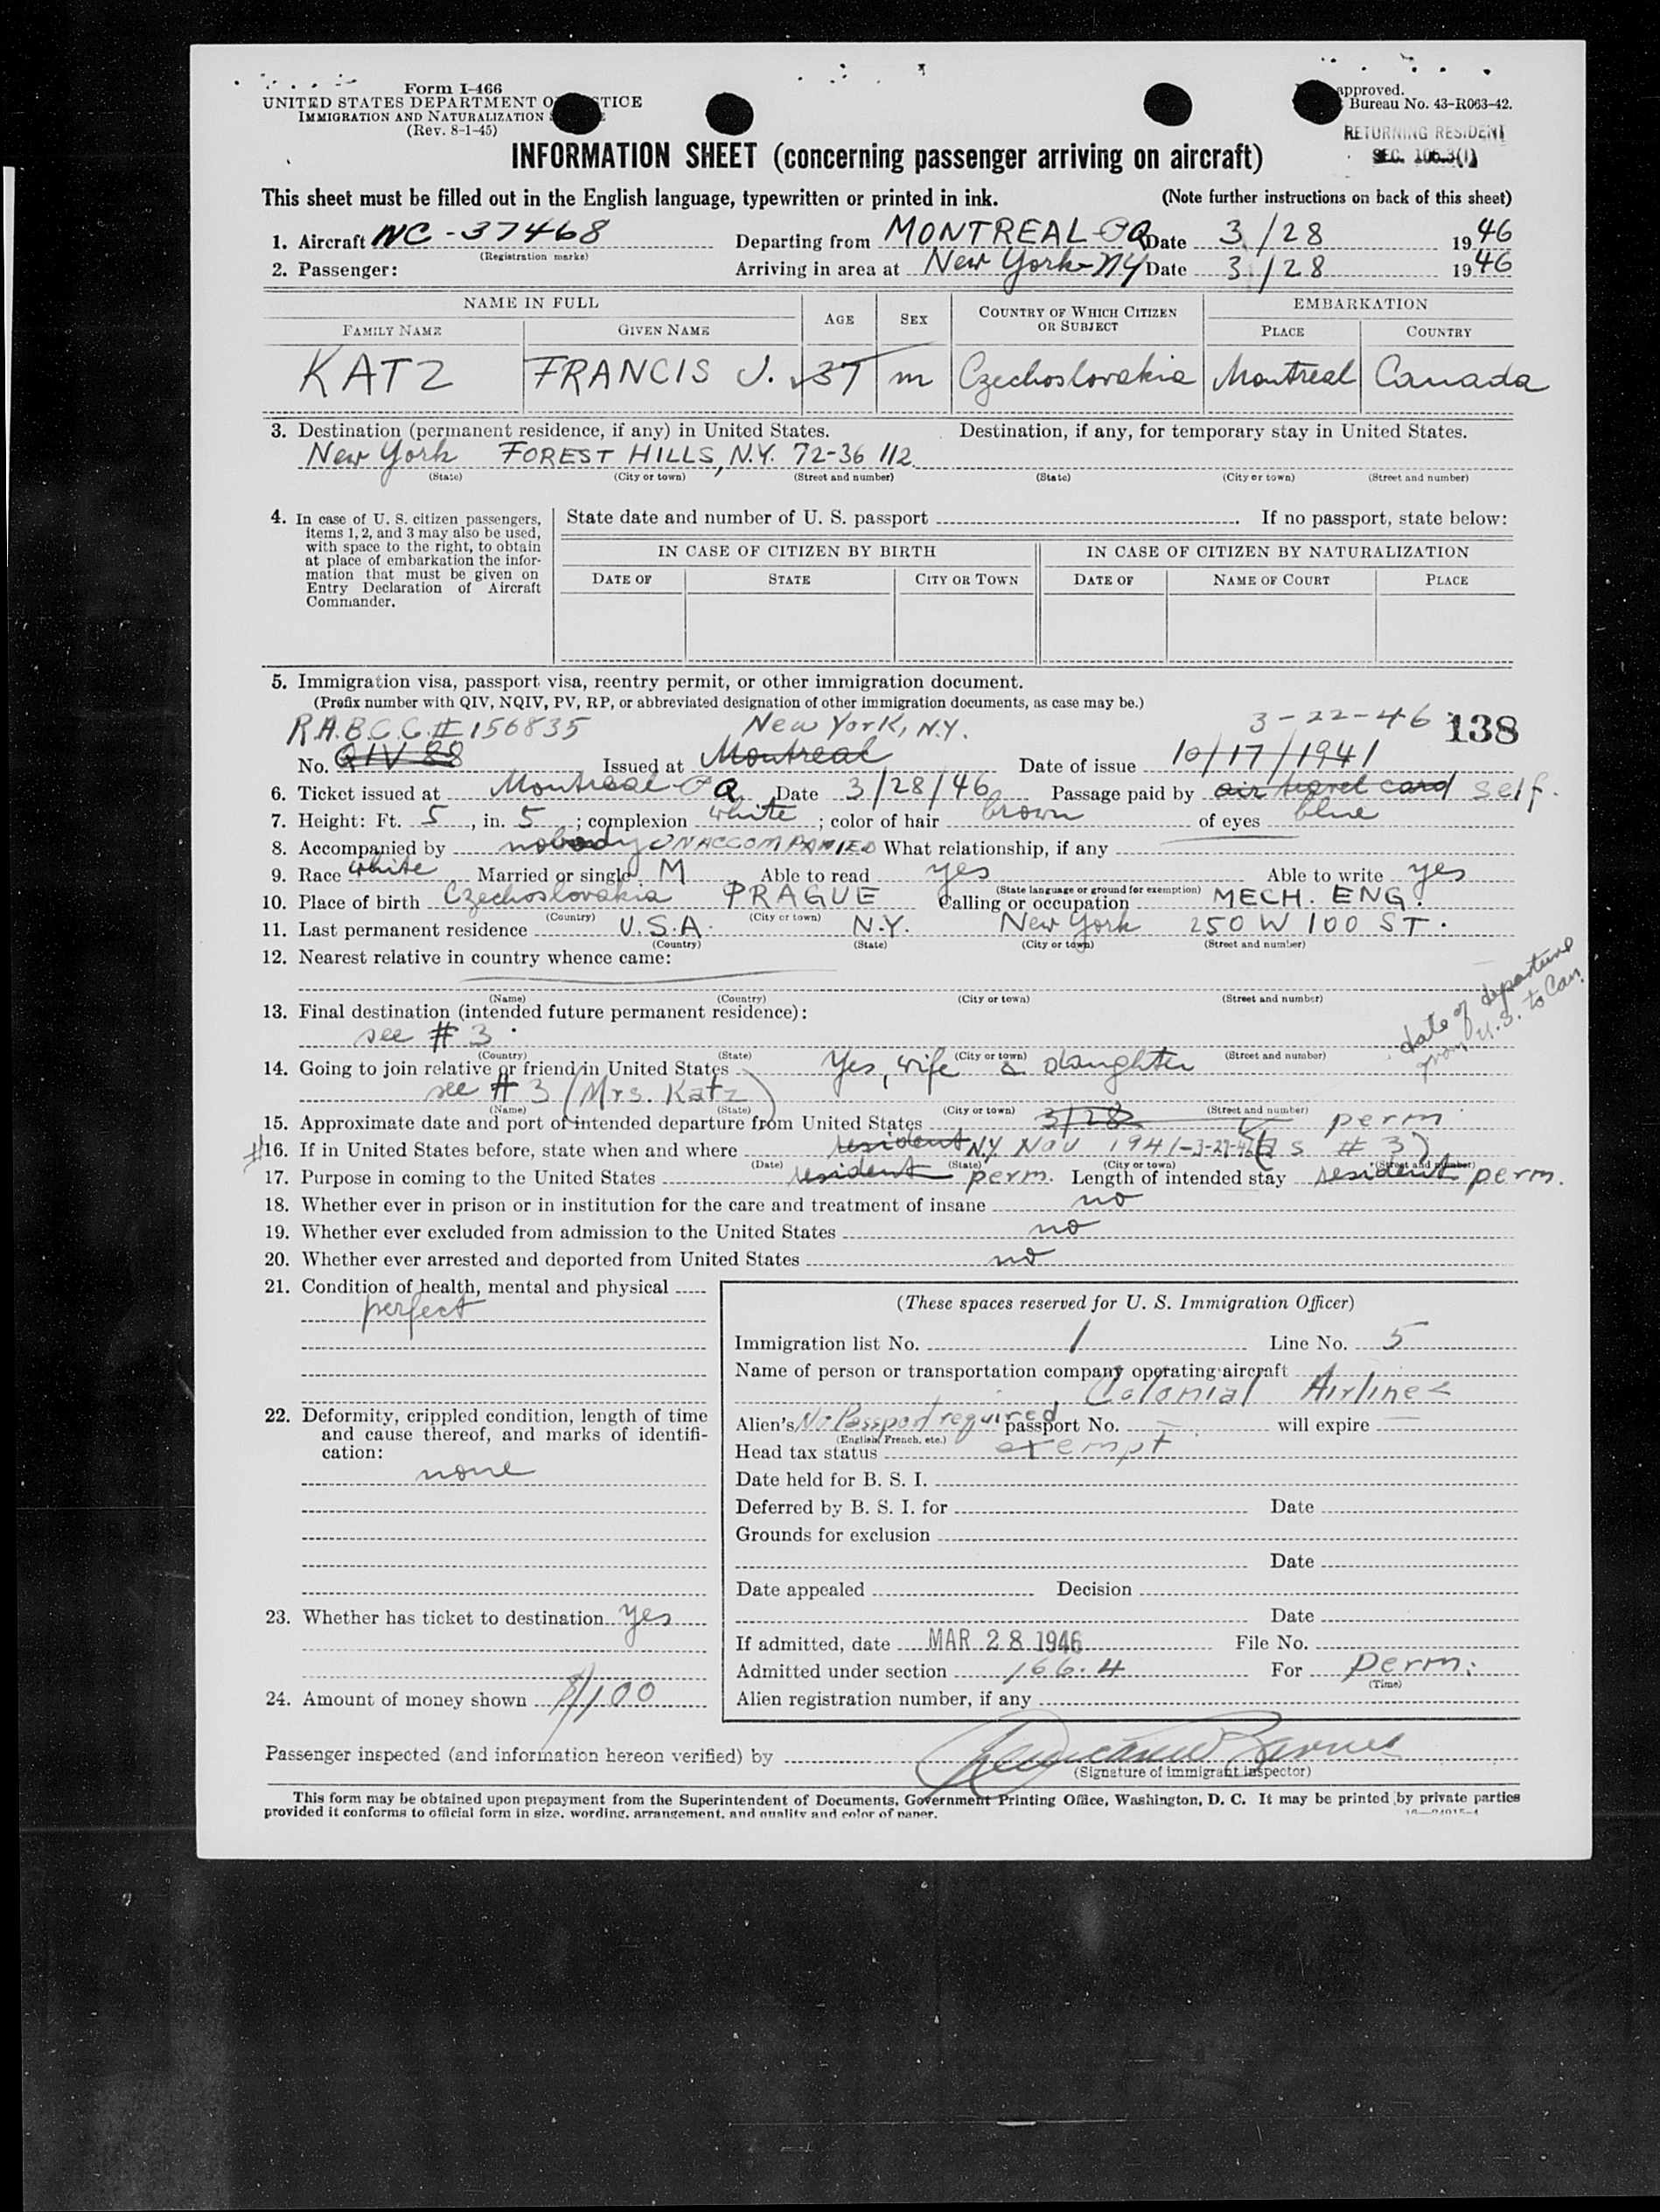 Form I-466
UNITED STATES DEPARTMENT O TICE
IMMIGRATION AND NATURALIZATION
(Rev. 8-1-45)
approved.
Bureau No. 43-R063-42.
RETURNING RESIDENT
SEC.
INFORMATION SHEET (concerning passenger arriving on aircraft)
This sheet must be filled out in the English language, typewritten or printed in ink. (Note further instructions on back of this sheet)
1. Aircraft NC-37468 Departing from MONTREAL PQ Date 3/28 1946
(Registration marks)
2. Passenger: Arriving in area at New York NY Date 3/28 1946
NAME IN FULL AGE SEX COUNTRY OF WHICH CITIZEN OR SUBJECT EMBARKATION
FAMILY NAME GIVEN NAME PLACE COUNTRY
KATZ FRANCIS J. 37 m Czechoslovakia Montreal Canada
3. Destination (permanent residence, if any) in United States. Destination, if any, for temporary stay in United States.
New York FOREST HILLS, N.Y. 72-36 112
(State) (City or town) (Street and number) (State) (City or town) (Street and number)
4. In case of U. S. citizen passengers, items 1, 2, and 3 may also be used, with space to the right, to obtain at place of embarkation the information that must be given on Entry Declaration of Aircraft Commander.
State date and number of U. S. passport . If no passport, state below:
IN CASE OF CITIZEN BY BIRTH IN CASE OF CITIZEN BY NATURALIZATION
DATE OF STATE CITY OR TOWN DATE OF NAME OF COURT PLACE
5. Immigration visa, passport visa, reentry permit, or other immigration document.
(Prefix number with QIV, NQIV, PV, RP, or abbreviated designation of other immigration documents, as case may be.)
R.A.B.C.C. # 156835 New York, N.Y. 3-22-46 138
No. QIV 88 Issued at Montreal Date of issue 10/17/1941
6. Ticket issued at Montreal PQ Date 3/28/46 Passage paid by air travel card self.
7. Height: Ft. 5, in. 5; complexion white; color of hair brown of eyes blue
8. Accompanied by nobody UNACCOMPANIED What relationship, if any
9. Race white Married or single M Able to read yes Able to write yes
(State language or ground for exemption)
10. Place of birth Czechoslovakia PRAGUE Calling or occupation MECH. ENG.
(Country) (City or town)
11. Last permanent residence U.S.A. N.Y. New York 250 W 100 ST.
(Country) (State) (City or town) (Street and number)
12. Nearest relative in country whence came:
(Name) (Country) (City or town) (Street and number)
date of departure from U.S. to Can.
13. Final destination (intended future permanent residence):
see # 3
(Country) (State) (City or town) (Street and number)
14. Going to join relative or friend in United States Yes, wife & daughter
see # 3 (Mrs. Katz)
(Name) (State) (City or town) (Street and number)
15. Approximate date and port of intended departure from United States 3/28 perm
#16. If in United States before, state when and where resident N.Y. NOV 1941- # 3)
(Date) (State) (City or town) (Street and number)
17. Purpose in coming to the United States resident perm. Length of intended stay resident perm.
18. Whether ever in prison or in institution for the care and treatment of insane no
19. Whether ever excluded from admission to the United States no
20. Whether ever arrested and deported from United States no
21. Condition of health, mental and physical
perfect
22. Deformity, crippled condition, length of time and cause thereof, and marks of identification:
none
23. Whether has ticket to destination yes
24. Amount of money shown $100
(These spaces reserved for U. S. Immigration Officer)
Immigration list No. 1 Line No. 5
Name of person or transportation company operating aircraft
Colonial Airlines
Alien's No Passport required passport No. will expire
(English, French, etc.)
Head tax status exempt
Date held for B. S. I.
Deferred by B. S. I. for Date
Grounds for exclusion
Date
Date appealed Decision
Date
If admitted, date MAR 28 1946 File No.
Admitted under section 166.4 For perm.
(Time)
Alien registration number, if any
Passenger inspected (and information hereon verified) by
(Signature of immigrant inspector)
This form may be obtained upon prepayment from the Superintendent of Documents, Government Printing Office, Washington, D. C. It may be printed by private parties
provided it conforms to official form in size, wording, arrangement, and quality and color of paper.